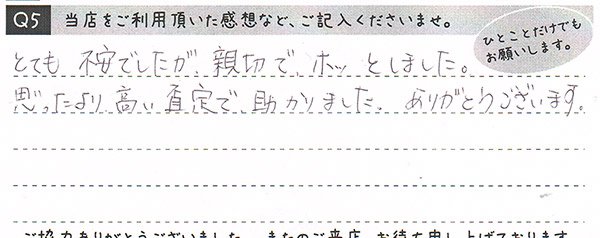 Q5 当店をご利用頂いた感想など、ご記入くださいませ。
ひとことだけでも
お願いします。
とても 不安でしたが、親切で、ホッ としました。
思ったより、高い査定で、助かりました。ありがとうございます。
ご協力ありがとうございました。またのご来店、お待ち申し上げております。